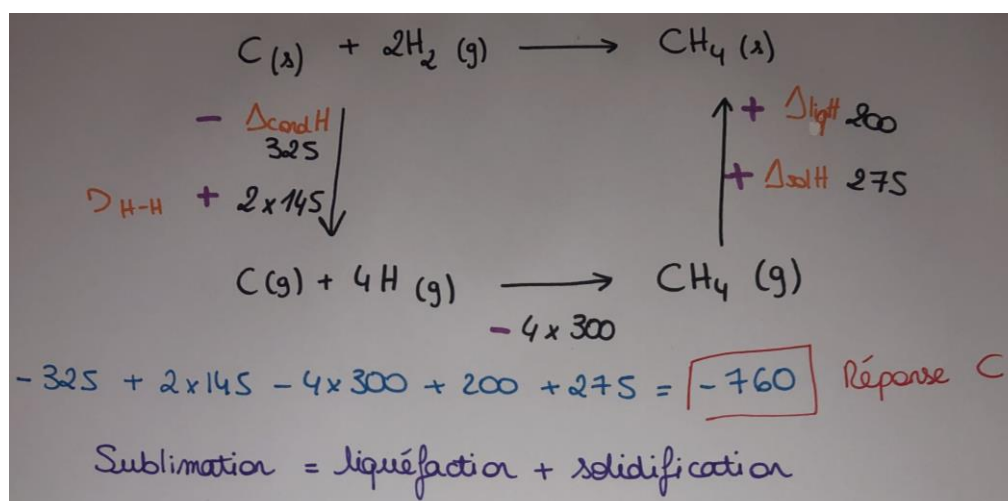 C(s) + 2H2 (g) → CH4 (s)
- ΔcondH
325
DH-H + 2x145
+ ΔliqH 200
+ ΔsolH 275
C(g) + 4H (g) → CH4 (g)
- 4 x 300
- 325 + 2x145 - 4x300 + 200 + 275 = - 760 Réponse C
Sublimation = liquéfaction + solidification